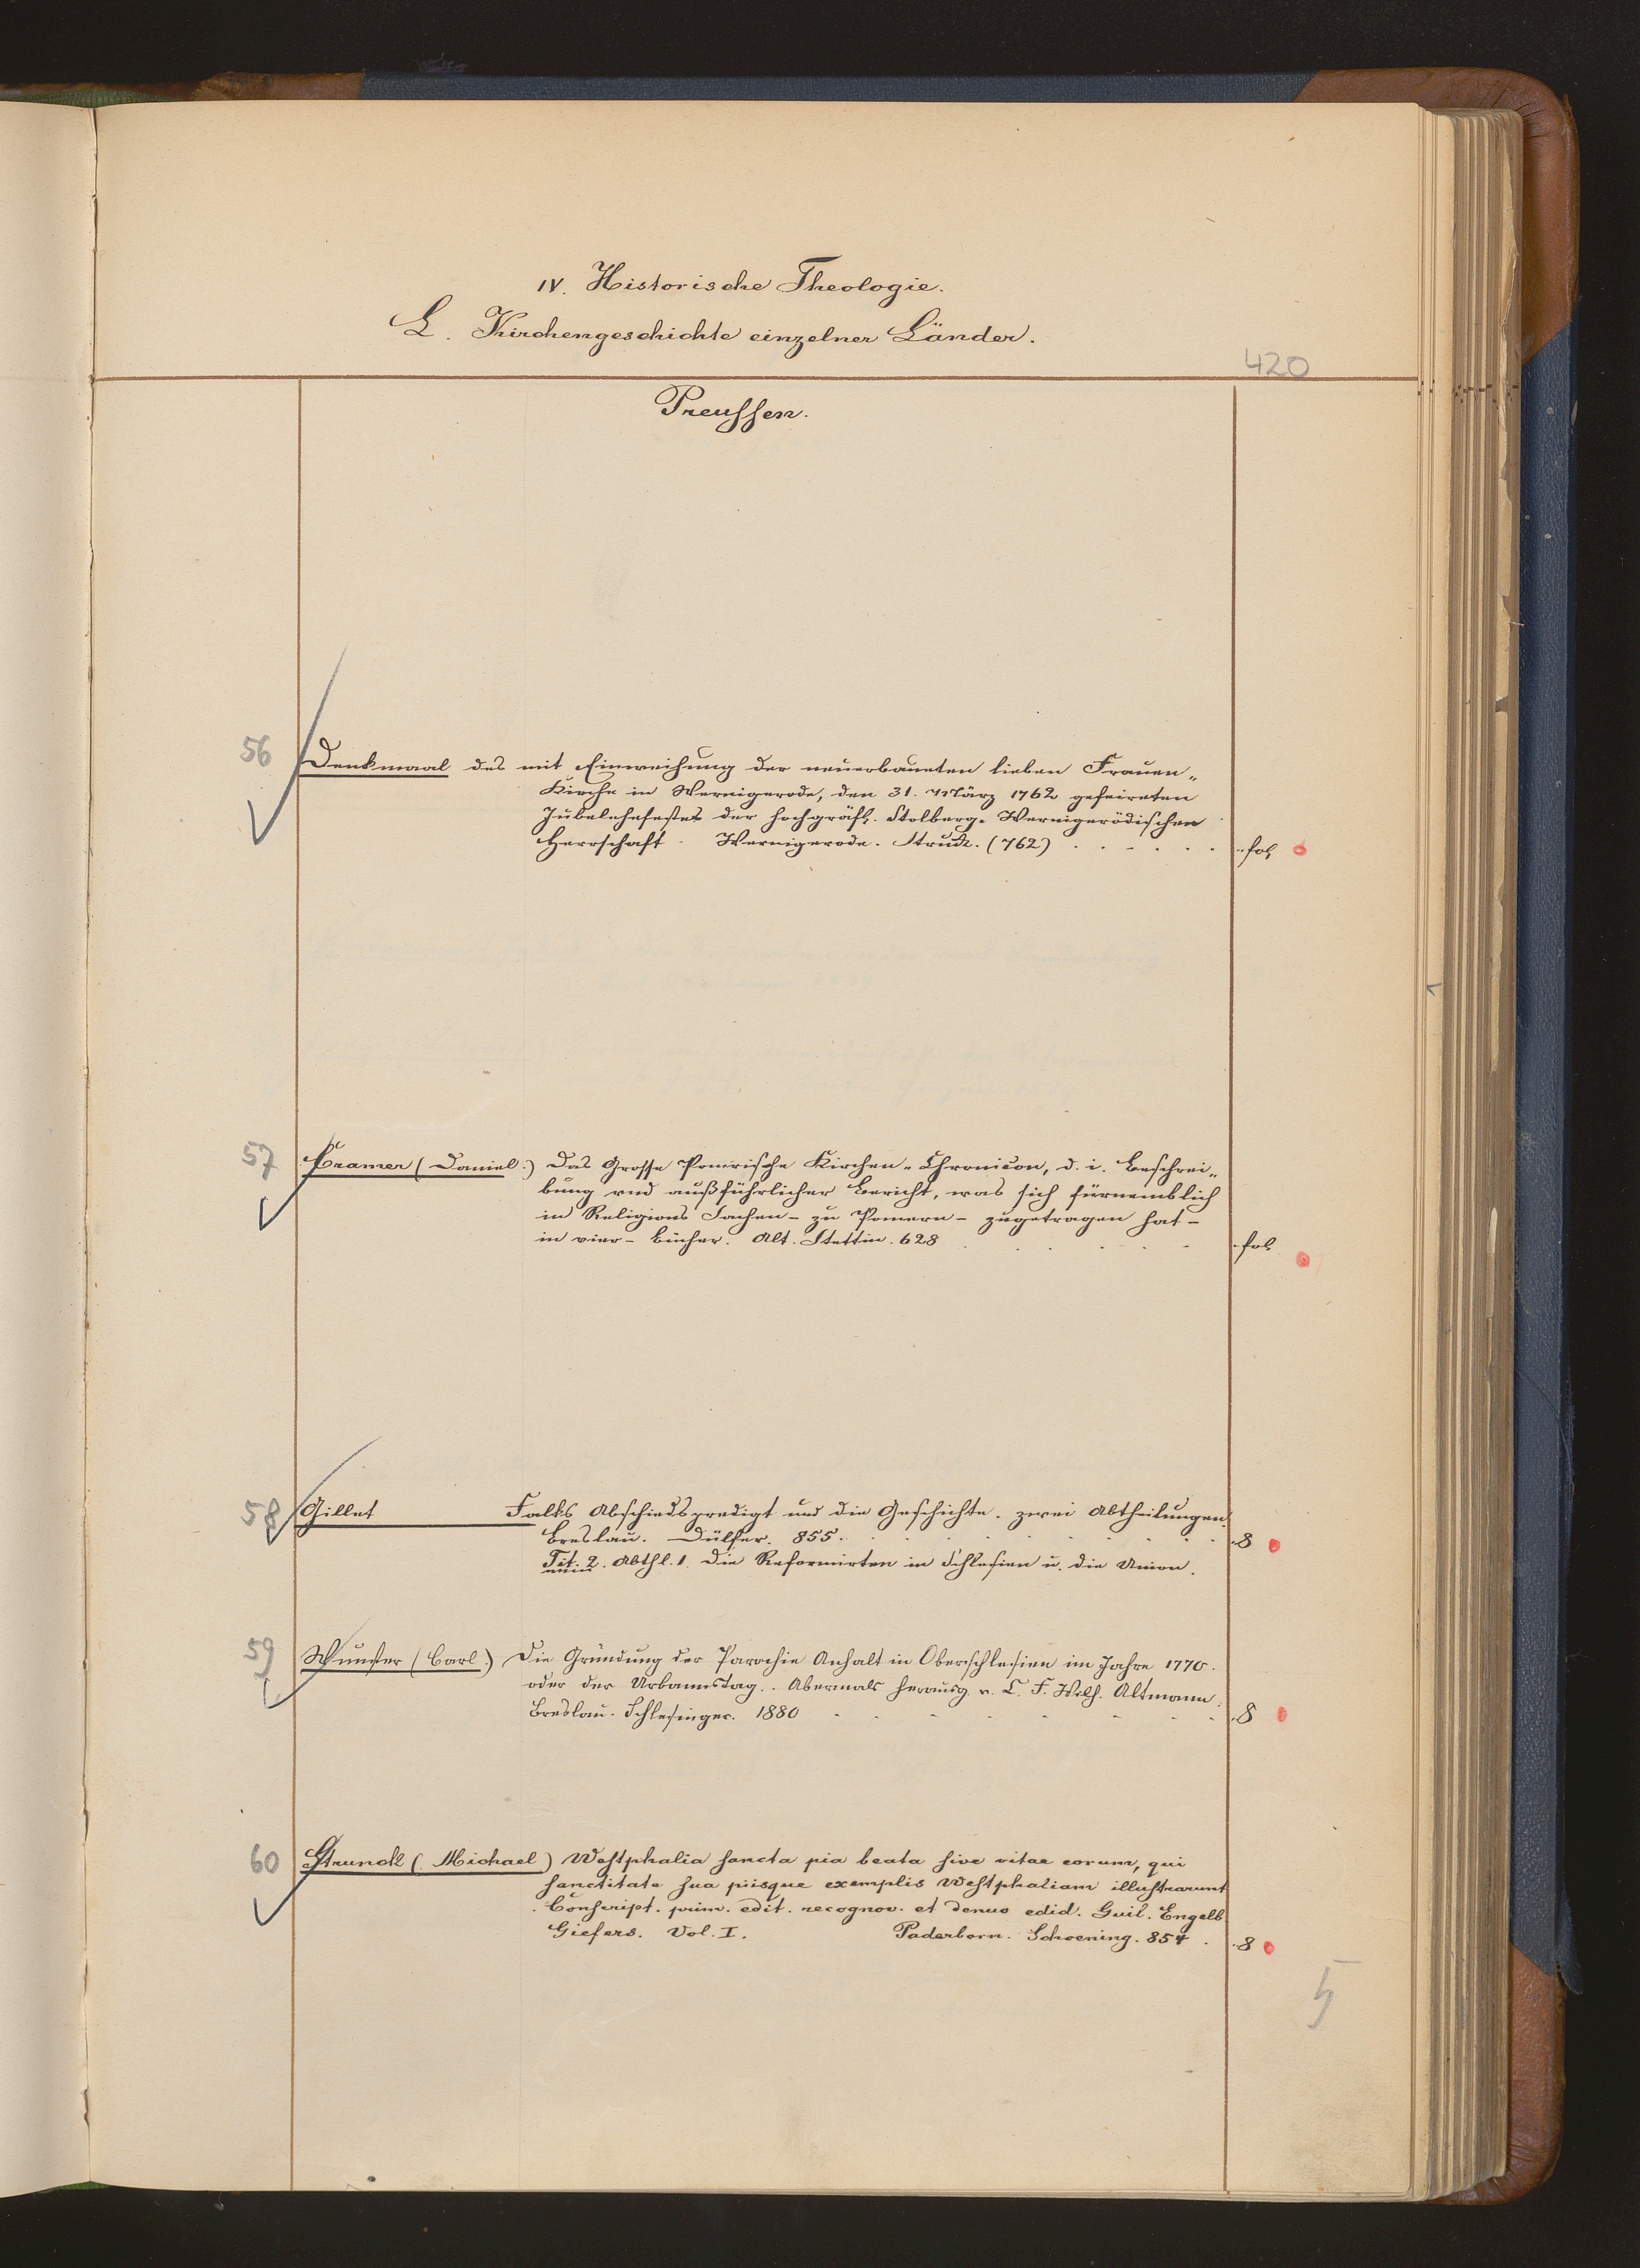 IV. Historische Theologie.
L. Kirchengeschichte einzelner Länder.
420
Preussen.
56 Denkmaal des mit Einweihung der neuerbaueten lieben Frauen-
Kirche in Wernigerode, den 31. März 1762 gefeireten
Jubelehefestes der hochgräfl. Stolberg-Wernigerödischen
Herrschaft. Wernigerode. Struck. (762) fol
57 Cramer (Daniel.) Das Grosse Pomrische Kirchen-Chronicon, d. i. Beschrei-
bung vnd außführlicher Bericht, was sich fürnemblich
in Religions Sachen - zu Pomern - zugetragen hat -
in vier - Bücher. Alt. Stettin. 628 fol
58 Gillet Falks Abschiedspredigt und die Geschichte. zwei Abtheilungen.
Breslau. Dülfer. 855. 8
Tit. 2. Abthl. 1. Die Reformirten in Schlesien u. die Union.
59 Wunster (Carl.) Die Gründung der Parochie Anhalt in Oberschlesien im Jahre 1770.
oder der Urbanustag. Abermals herausg. v. C. F. Wilh. Altmann.
Breslau. Schlesinger. 1880 8
60 Strunck (Michael) Westphalia sancta pia beata sive vitae eorum, qui
sanctitate sua piisque exemplis Westphaliam illustrarunt
Conscript. prim. edit. recognov. et denuo edid. Guil. Engelb
Giefers. Vol. I. Paderborn. Schoening. 854. 8
5